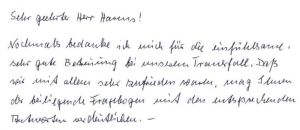 Sehr geehrter Herr Harms!
Nochmals bedanke ich mich für die einfühlsame,
sehr gute Betreuung bei unserem Trauerfall. Daß
wir mit allem sehr zufrieden waren, mag Ihnen
der beiliegende Fragebogen mit den entsprechenden
Antworten verdeutlichen. —